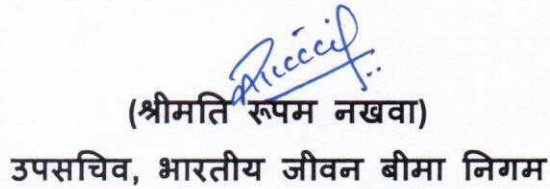 (श्रीमति रूपम नखवा)
उपसचिव, भारतीय जीवन बीमा निगम